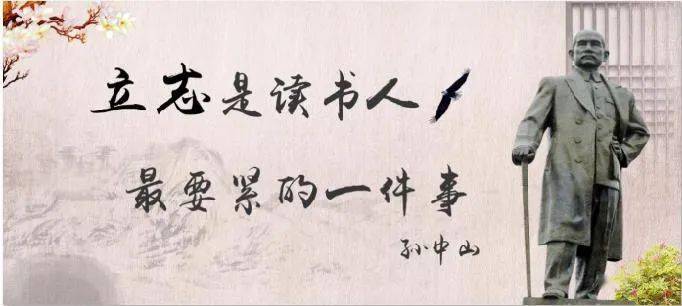 立志是读书人
最要紧的一件事
孙中山